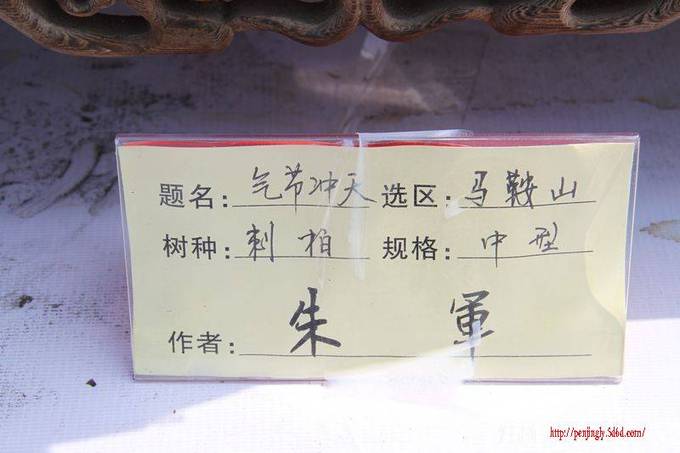 题名：气节冲天 选区：马鞍山
树种：刺柏 规格：中型
作者：朱軍
http://penjingly.5d6d.com/